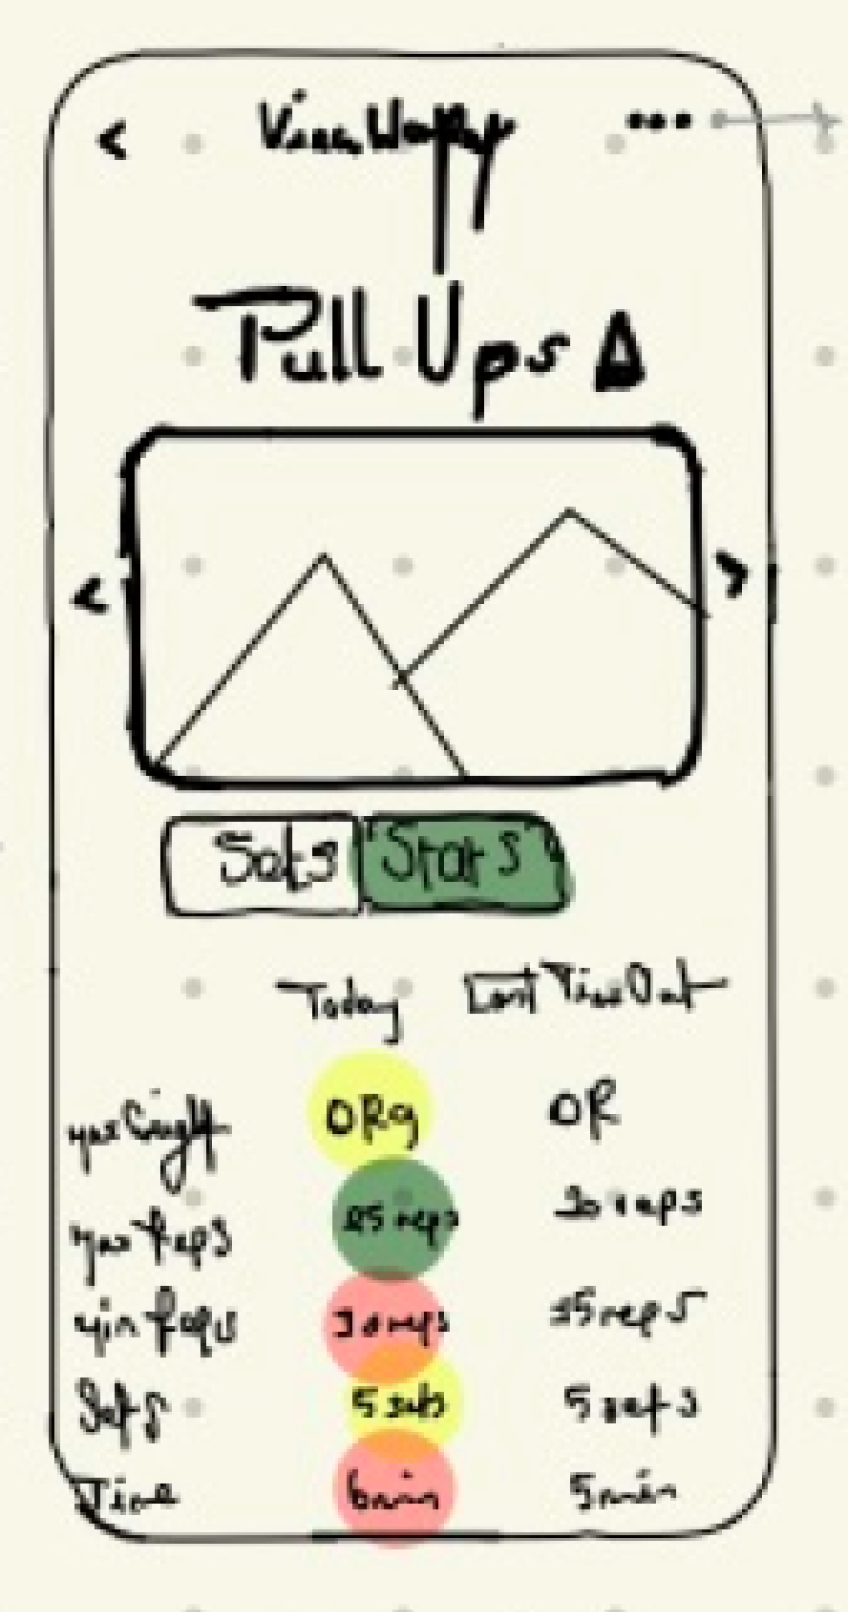 <
Pull Ups
< >
Sets Stats
Today Last Time Out
max
max Reps 25 reps 20 reps
min Reps reps 15 reps
Sets 5 sets 5 sets
Time 6min 5min